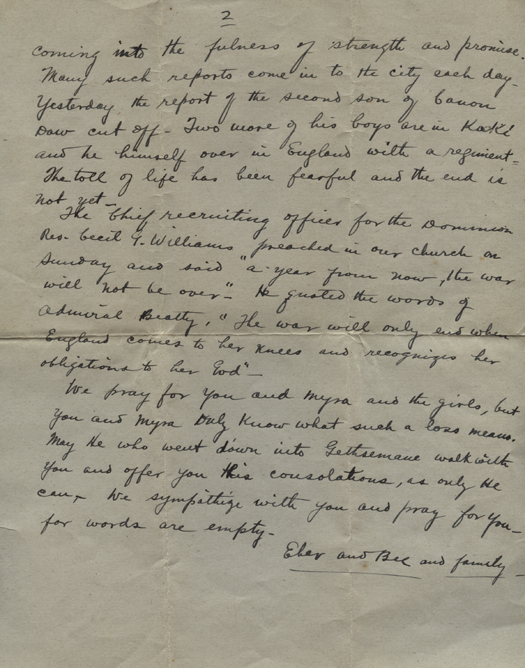 2
coming into the fulness of strength and promise.
Many such reports come in to the city each day.
Yesterday the report of the second son of Canon
Daw cut off - Two more of his boys are in Kaki
and he himself over in England with a regiment -
The toll of life has been fearful and the end is
not yet -
The Chief recruiting officer for the Dominion
Rev. Cecil G. Williams preached in our church on
Sunday and said "a year from now, the war
will not be over" - He quoted the words of
Admiral Beatty, "The war will only end when
England comes to her knees and recognizes her
obligations to her God" -
We pray for you and Myra and the girls, but
you and Myra only know what such a loss means.
May He who went down into Gethsemane walk with
you and offer you His consolations, as only He
can, - We sympathize with you and pray for you -
for words are empty -
Eber and Bee and family -